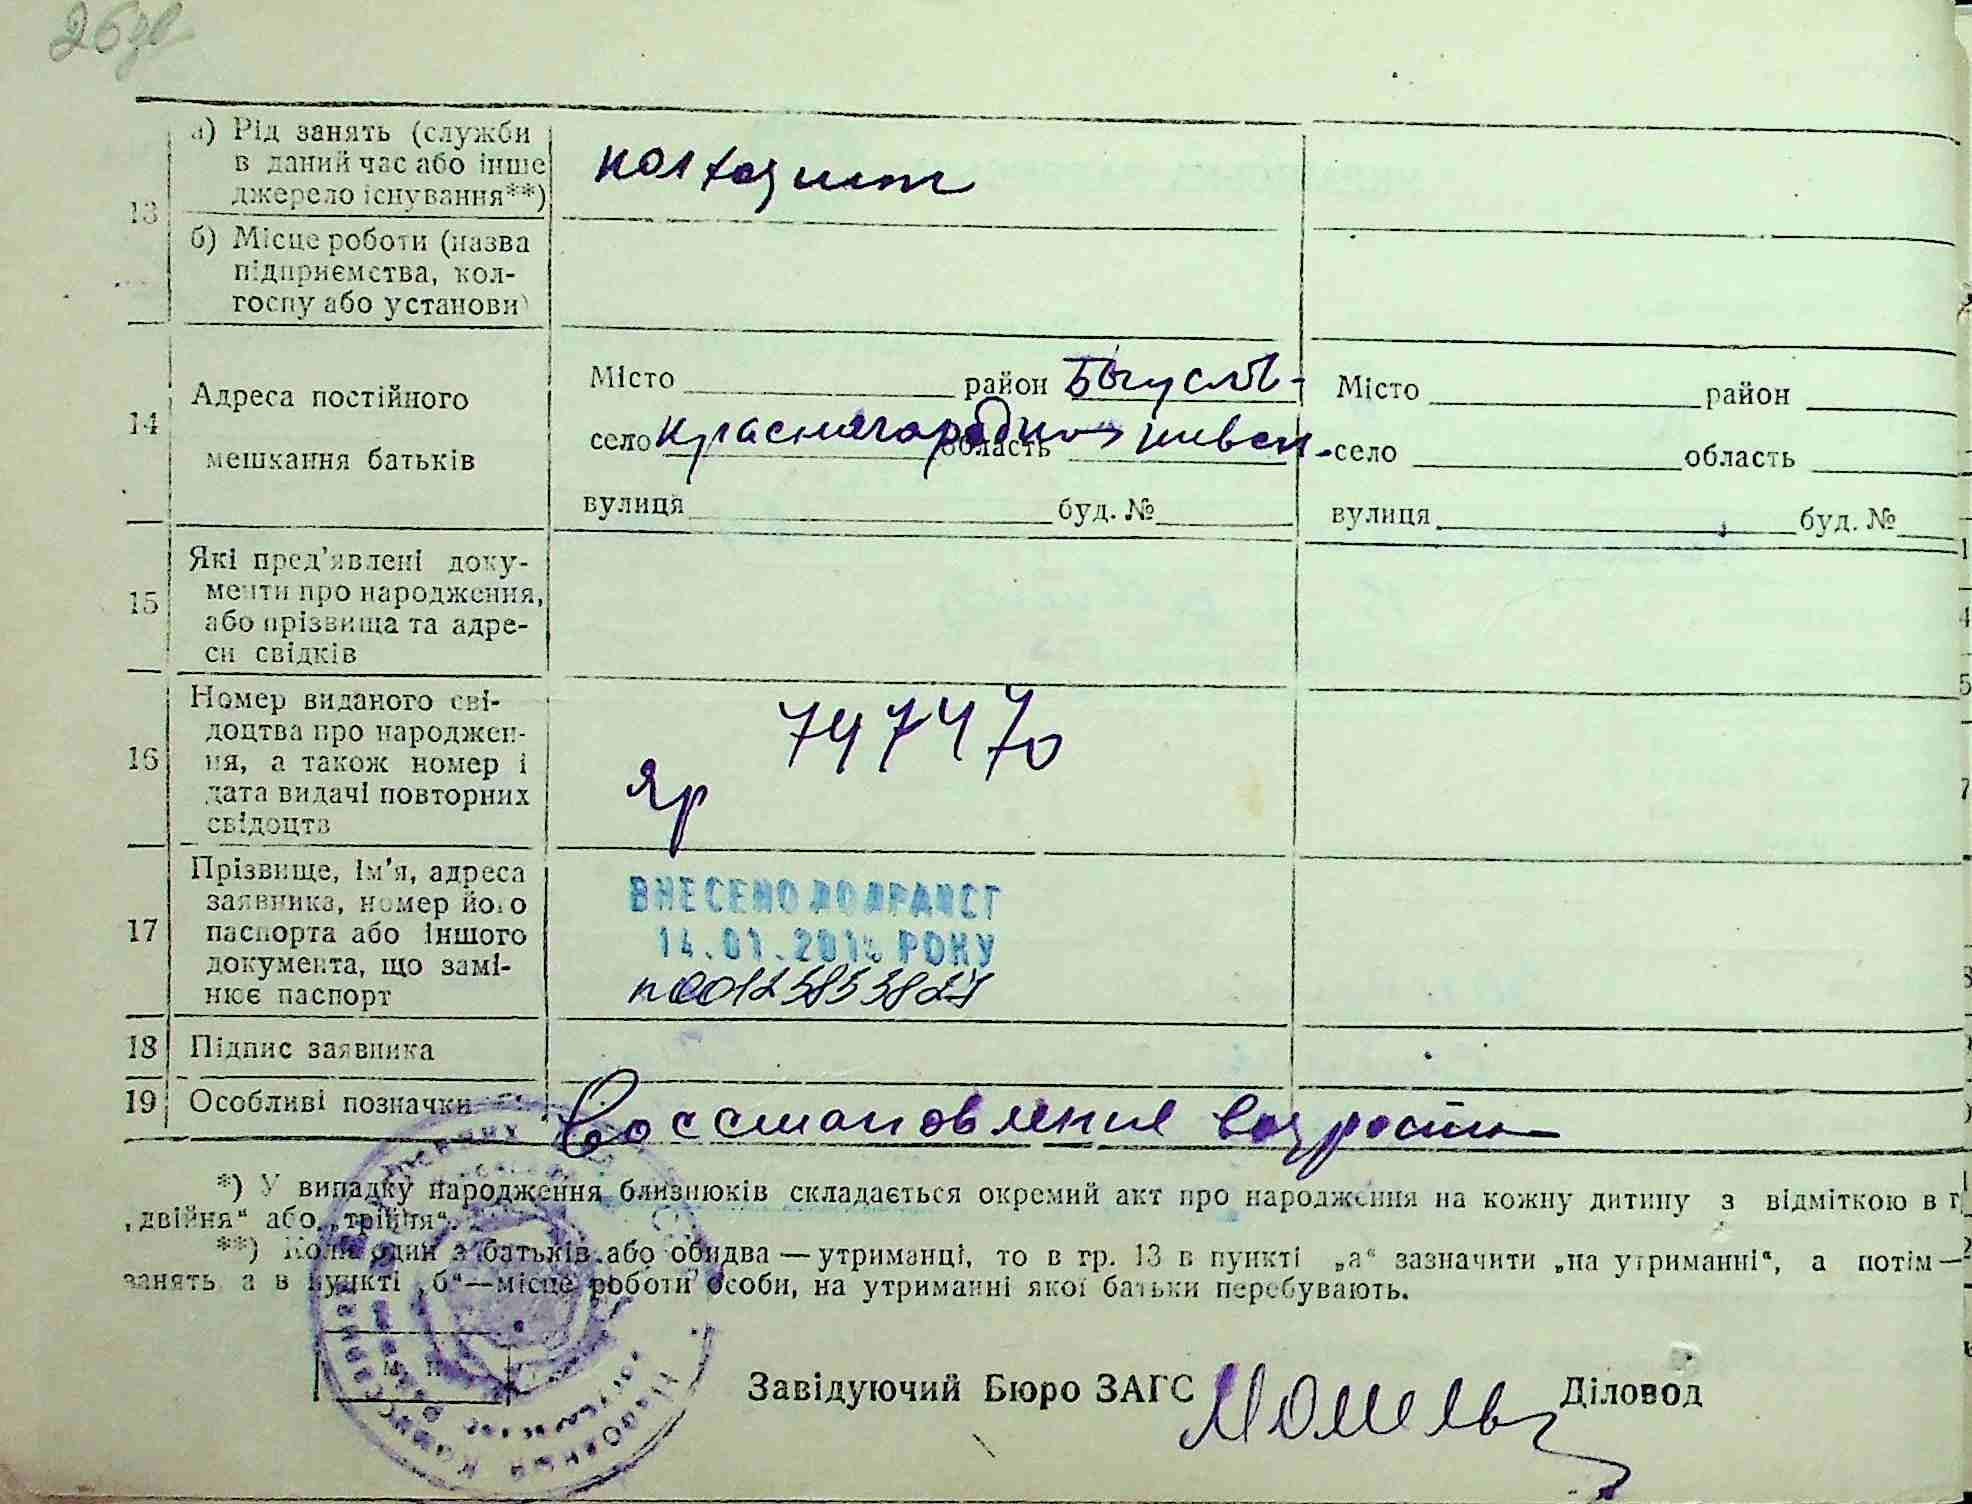 26зв
13 а) Рід занять (служби
в даний час або інше
джерело існування**)
колхозник
б) Місце роботи (назва
підприємства, кол-
госпу або установи)
14 Адреса постійного
мешкання батьків
Місто район Богусл-
село Красногородка область киевск.
вулиця буд. №
Місто район
село область
вулиця буд. №
15 Які пред'явлені доку-
менти про народження,
або прізвища та адре-
си свідків
16 Номер виданого сві-
доцтва про народжен-
ня, а також номер і
дата видачі повторних
свідоцтв
747470
Яр
17 Прізвище, ім'я, адреса
заявника, номер його
паспорта або іншого
документа, що замі-
нює паспорт
ВНЕСЕНО ДО ДРАЦСГ
14.01.2014 РОКУ
18 Підпис заявника
19 Особливі позначки
Восстановление возраста
*) У випадку народження близнюків складається окремий акт про народження на кожну дитину з відміткою в г
„двійня“ або „трійня“.
**) Коли один з батьків або обидва — утриманці, то в гр. 13 в пункті „а“ зазначити „на утриманні“, а потім —
занять, а в пункті „б“—місце роботи особи, на утриманні якої батьки перебувають.
М. П.
Завідуючий Бюро ЗАГС
Діловод